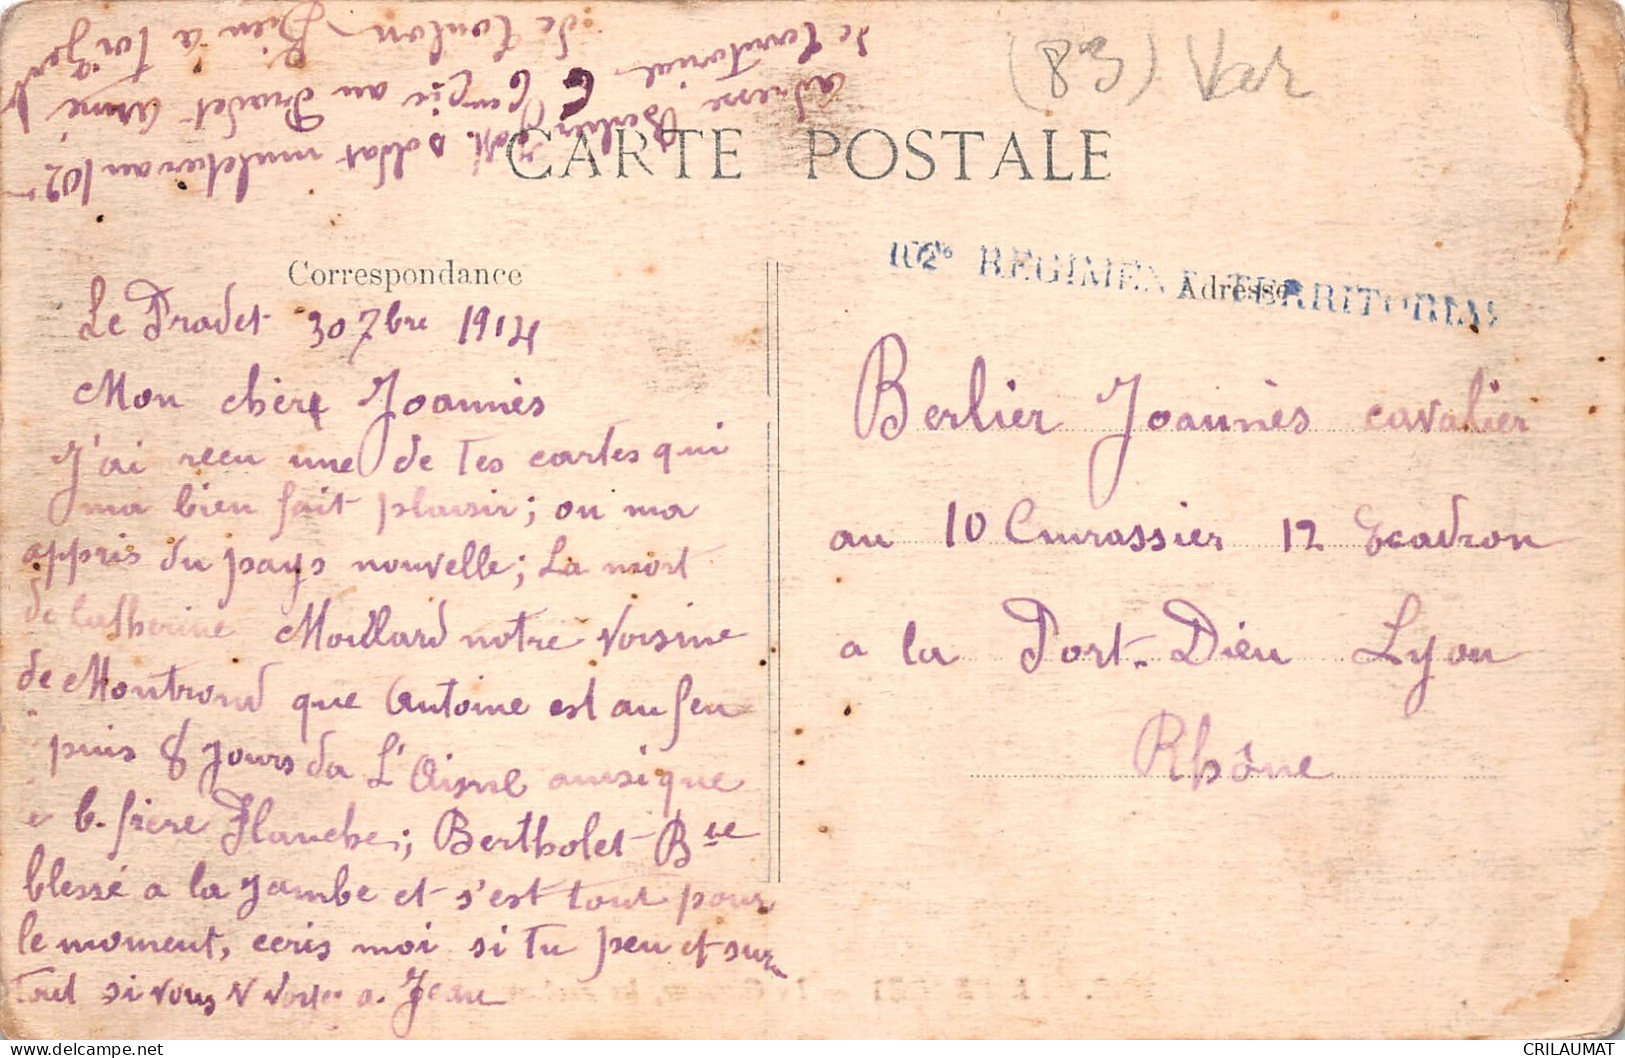 (83) Var
CARTE POSTALE
102e REGIMENT TERRITORIAL
Correspondance
Adresse
Le Pradet 30 7bre 1914
Mon chère Joannès
J'ai recu une de tes cartes qui
ma bien fait plaisir; on ma
appris du pays nouvelle; La mort
de Catherine Moillard notre voisine
de Montrond que Antoine est au feu
puis 8 jours da L'Aisne ainsi que
b. frère Planche; Bertholet Bte
blessé a la jambe et s'est tout pour
le moment, ecris moi si tu peu et sur
tout si vous a. Jean
Berlier Joannès cavalier
au 10 Cuirassier 12 Escadron
a la Part-Dieu Lyon
Rhône
adresse Berlier soldat muletier au 102
de territorial 6 Cie au Pradet
de Toulon Bien a toi
CRILAUMAT